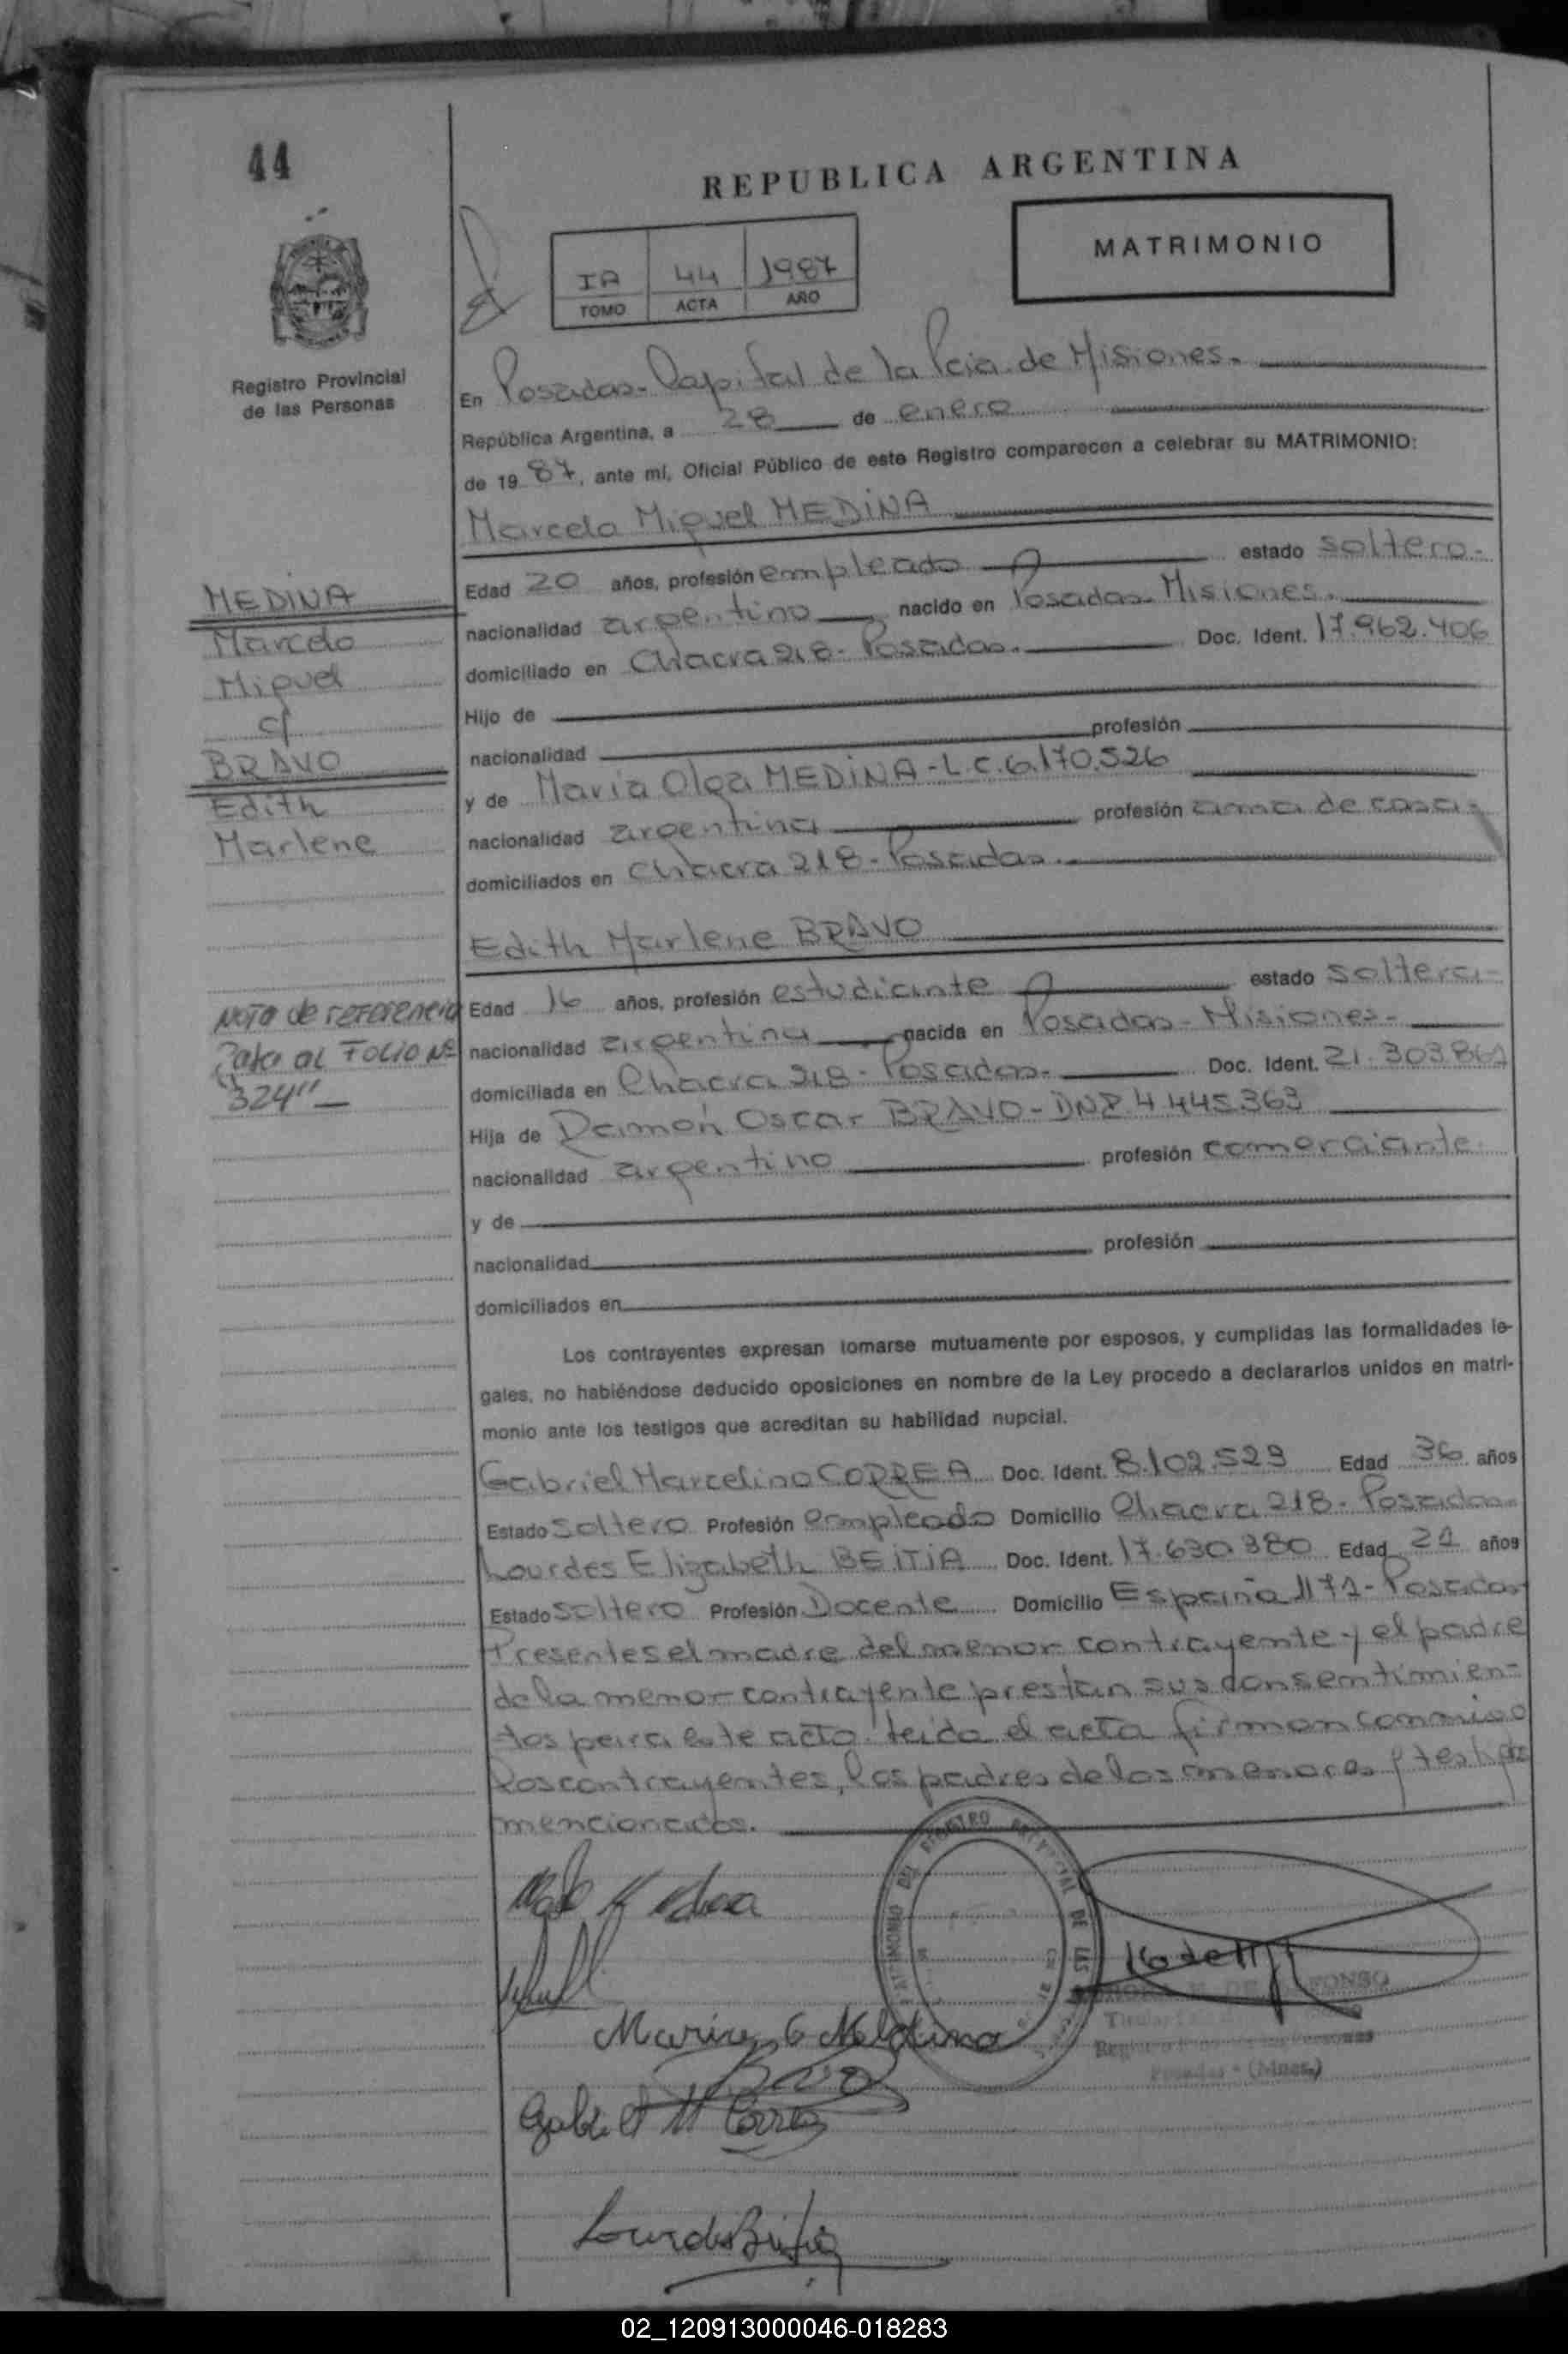 44
REPUBLICA ARGENTINA
MATRIMONIO
IA 44 1987
TOMO ACTA AÑO
Registro Provincial
de las Personas
En Posadas-Capital de la Pcia. de Misiones.
República Argentina, a 28 de enero
de 1987, ante mí, Oficial Público de este Registro comparecen a celebrar su MATRIMONIO:
Marcelo Miguel MEDINA
Edad 20 años, profesión empleado estado soltero.
nacionalidad argentino nacido en Posadas-Misiones.
domiciliado en Chacra 218-Posadas. Doc. Ident. 17.962.406
Hijo de
nacionalidad profesión
y de Maria Olga MEDINA-L.C.6.170.526
nacionalidad argentina profesión ama de casa.
domiciliados en Chacra 218-Posadas.
MEDINA
Marcelo
Miguel
c/
BRAVO
Edith
Marlene
Edith Marlene BRAVO
Edad 16 años, profesión estudiante estado soltera-
nacionalidad argentina nacida en Posadas-Misiones-
domiciliada en Chacra 218-Posadas- Doc. Ident. 21.303.861
Hija de Ramón Oscar BRAVO-DNI 4.445.363
nacionalidad argentino profesión comerciante.
y de
nacionalidad profesión
domiciliados en
Nota de referencia
Pasa al Folio Nº
"324"
Los contrayentes expresan tomarse mutuamente por esposos, y cumplidas las formalidades le-
gales, no habiéndose deducido oposiciones en nombre de la Ley procedo a declararlos unidos en matri-
monio ante los testigos que acreditan su habilidad nupcial.
Gabriel Marcelino CORREA Doc. Ident. 8.102.529 Edad 36 años
Estado soltero Profesión empleado Domicilio Chacra 218-Posadas-
Lourdes Elizabeth BEITIA Doc. Ident. 17.630.380 Edad 21 años
Estado soltero Profesión Docente Domicilio España 1171-Posadas
Presentes el madre del menor contrayente y el padre
de la menor contrayente prestan sus consentimien-
tos para este acto. Leida el acta firman conmigo
los contrayentes, los padres de los menores y testigos
mencionados.
Medina
Maria O Medina
Bravo
Gabriel M Correa
Lourdes Beitia
REGISTRO PROVINCIAL DE LAS
Posadas - (Mnes.)
02_120913000046-018283